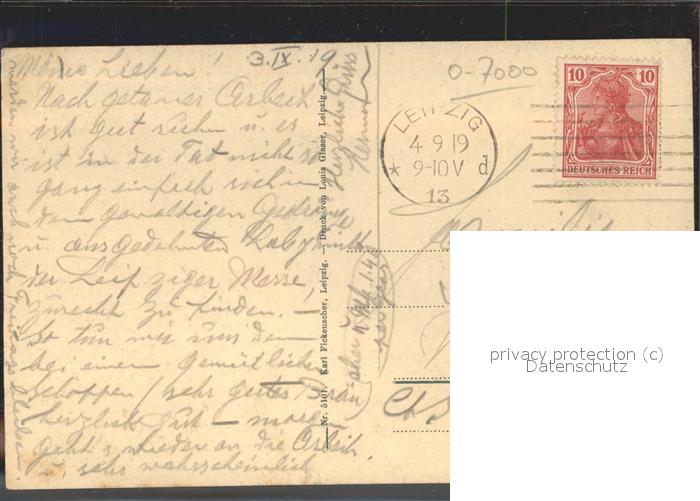 3. IX. 19
Meine Lieben!
Nach getaner Arbeit
ist gut ruhn u. es
ist in der Tat nicht so
ganz einfach sich in
dem gewaltigen Gedränge
u. ausgedehnten Labyrinth
der Leipziger Messe,
zurecht zu finden. –
So tun wir uns denn
bei einem gemütlichen
schoppen (sehr gutes Bräu)
herzlich gut – morgen
geht's wieder an die Arbeit.
u. sehr wahrscheinlich
werden wir auch noch Freitag
Herzliche Grüsse
aber
Nr. 5101. Karl Fickenscher, Leipzig. — Druck von Louis Glaser, Leipzig.
0-7000
LEIPZIG
4 9 19
* 9-10 V d
13
10 10
DEUTSCHES REICH
privacy protection (c)
Datenschutz